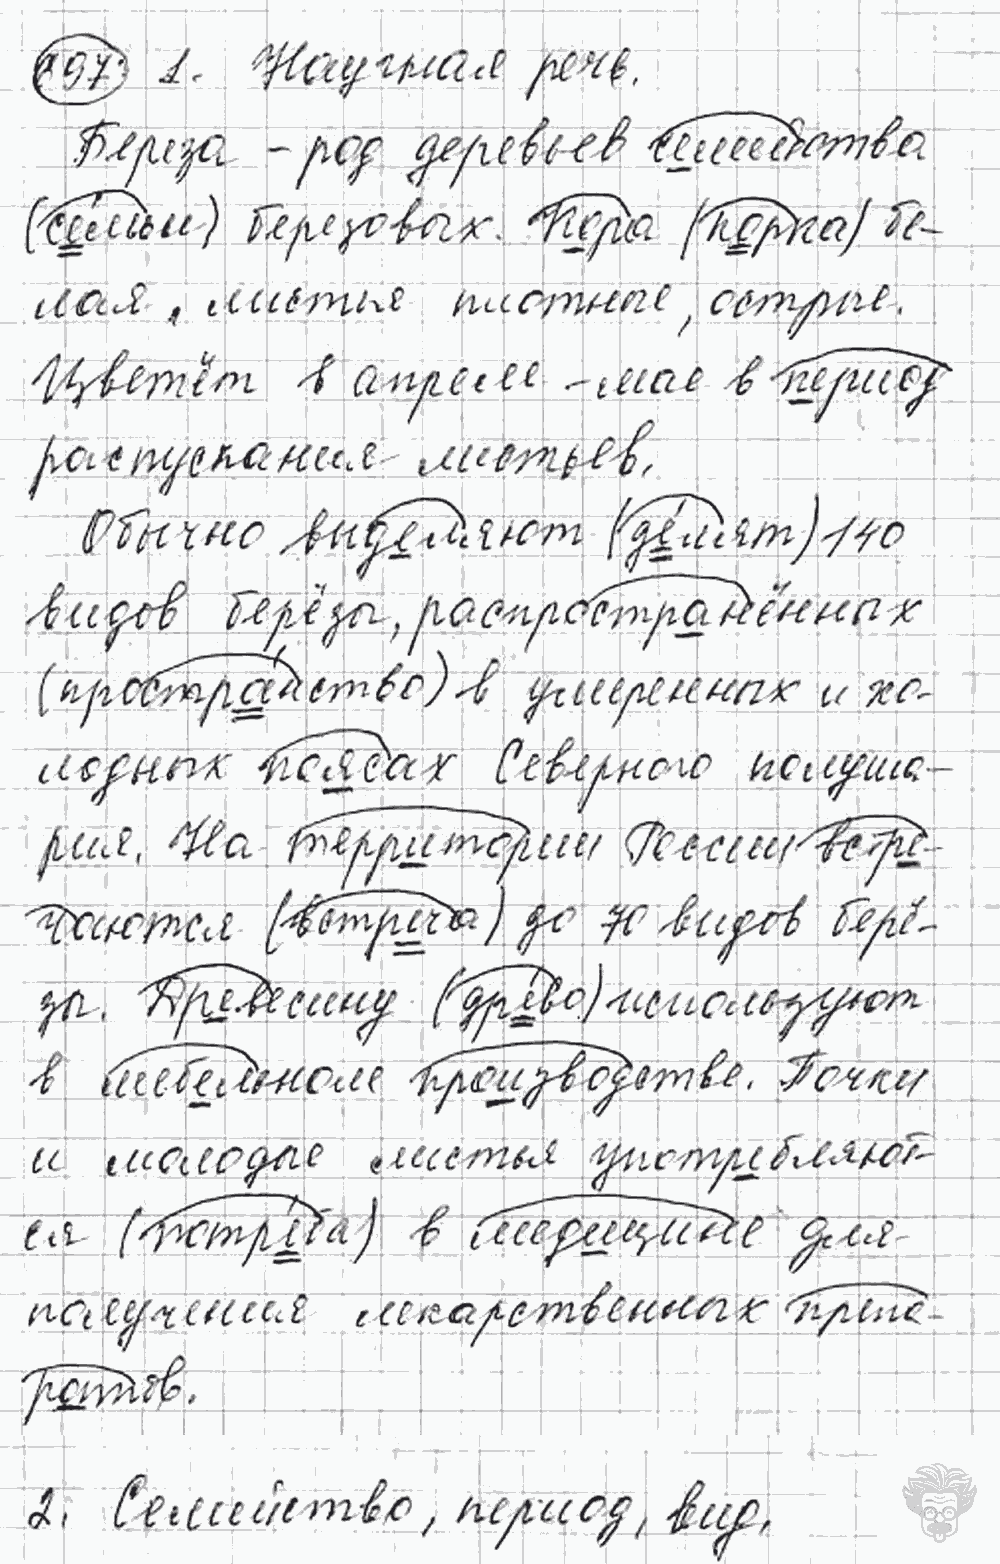 897 1. Научная речь.
Береза – род деревьев семейства
(се́мьи) березовых. Кора (ко́рка) бе-
лая, листья плотные, острые.
Цветёт в апреле – мае в период
распускания листьев.
Обычно выделяют (де́лят) 140
видов берёзы, распространённых
(простра́нство) в умеренных и хо-
лодных поясах Северного полуша-
рия. На территории России встре-
чаются (встреча) до 70 видов берё-
зы. Древесину (дре́во) используют
в мебельном производстве. Почки
и молодые листья употребляют-
ся (потре́ба) в медицине для
получения лекарственных препа-
ратов.
2. Семейство, период, вид.